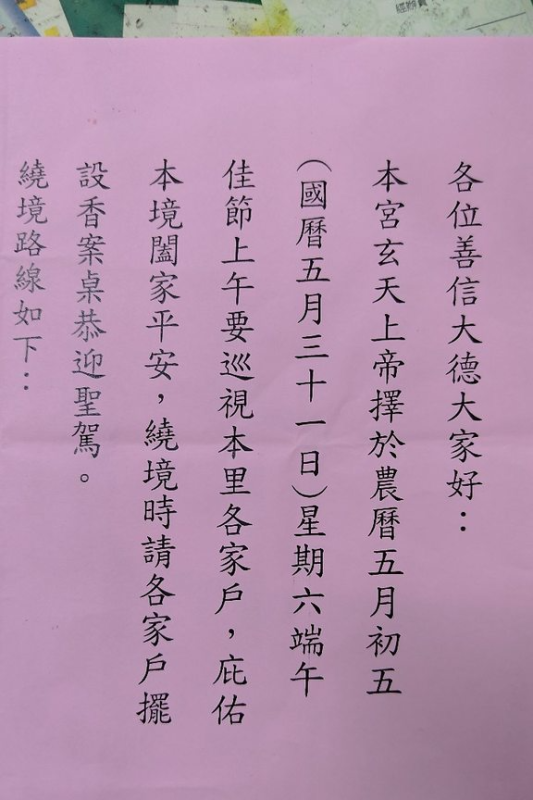 各位善信大德大家好：
本宮玄天上帝擇於農曆五月初五
（國曆五月三十一日）星期六端午
佳節上午要巡視本里各家戶，庇佑
本境闔家平安，繞境時請各家戶擺
設香案桌恭迎聖駕。
繞境路線如下：